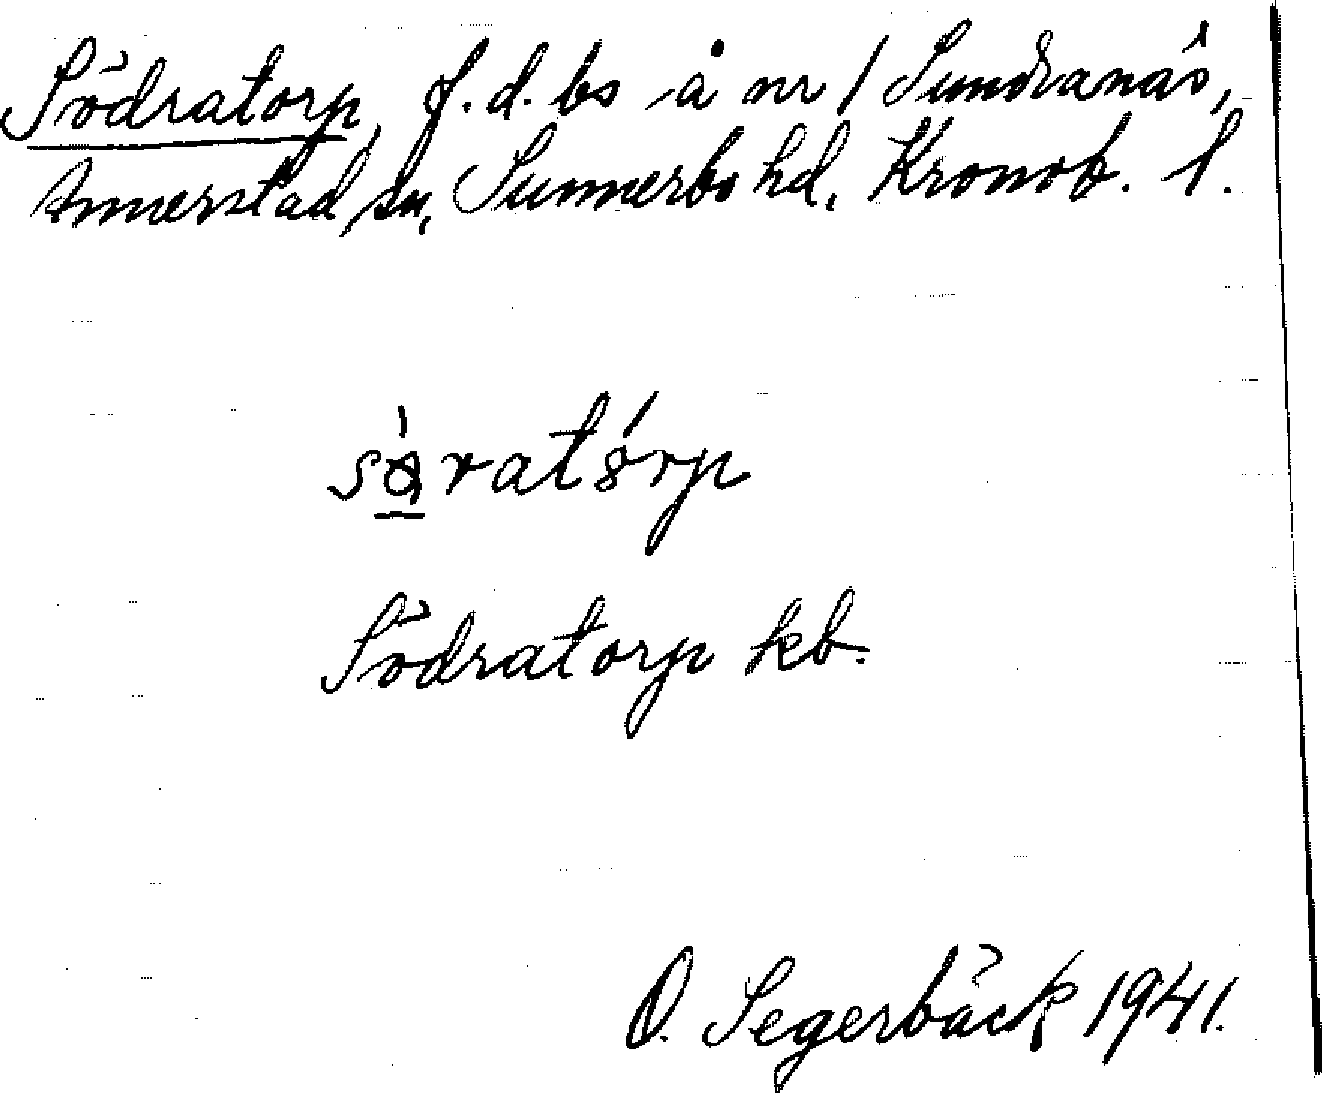 Södratorp, f.d. bs å nr 1 Sundranäs,
Annerstad sn, Sunnerbo hd, Kronob. l.
Södratorp kb.
O. Segerbäck 1941.